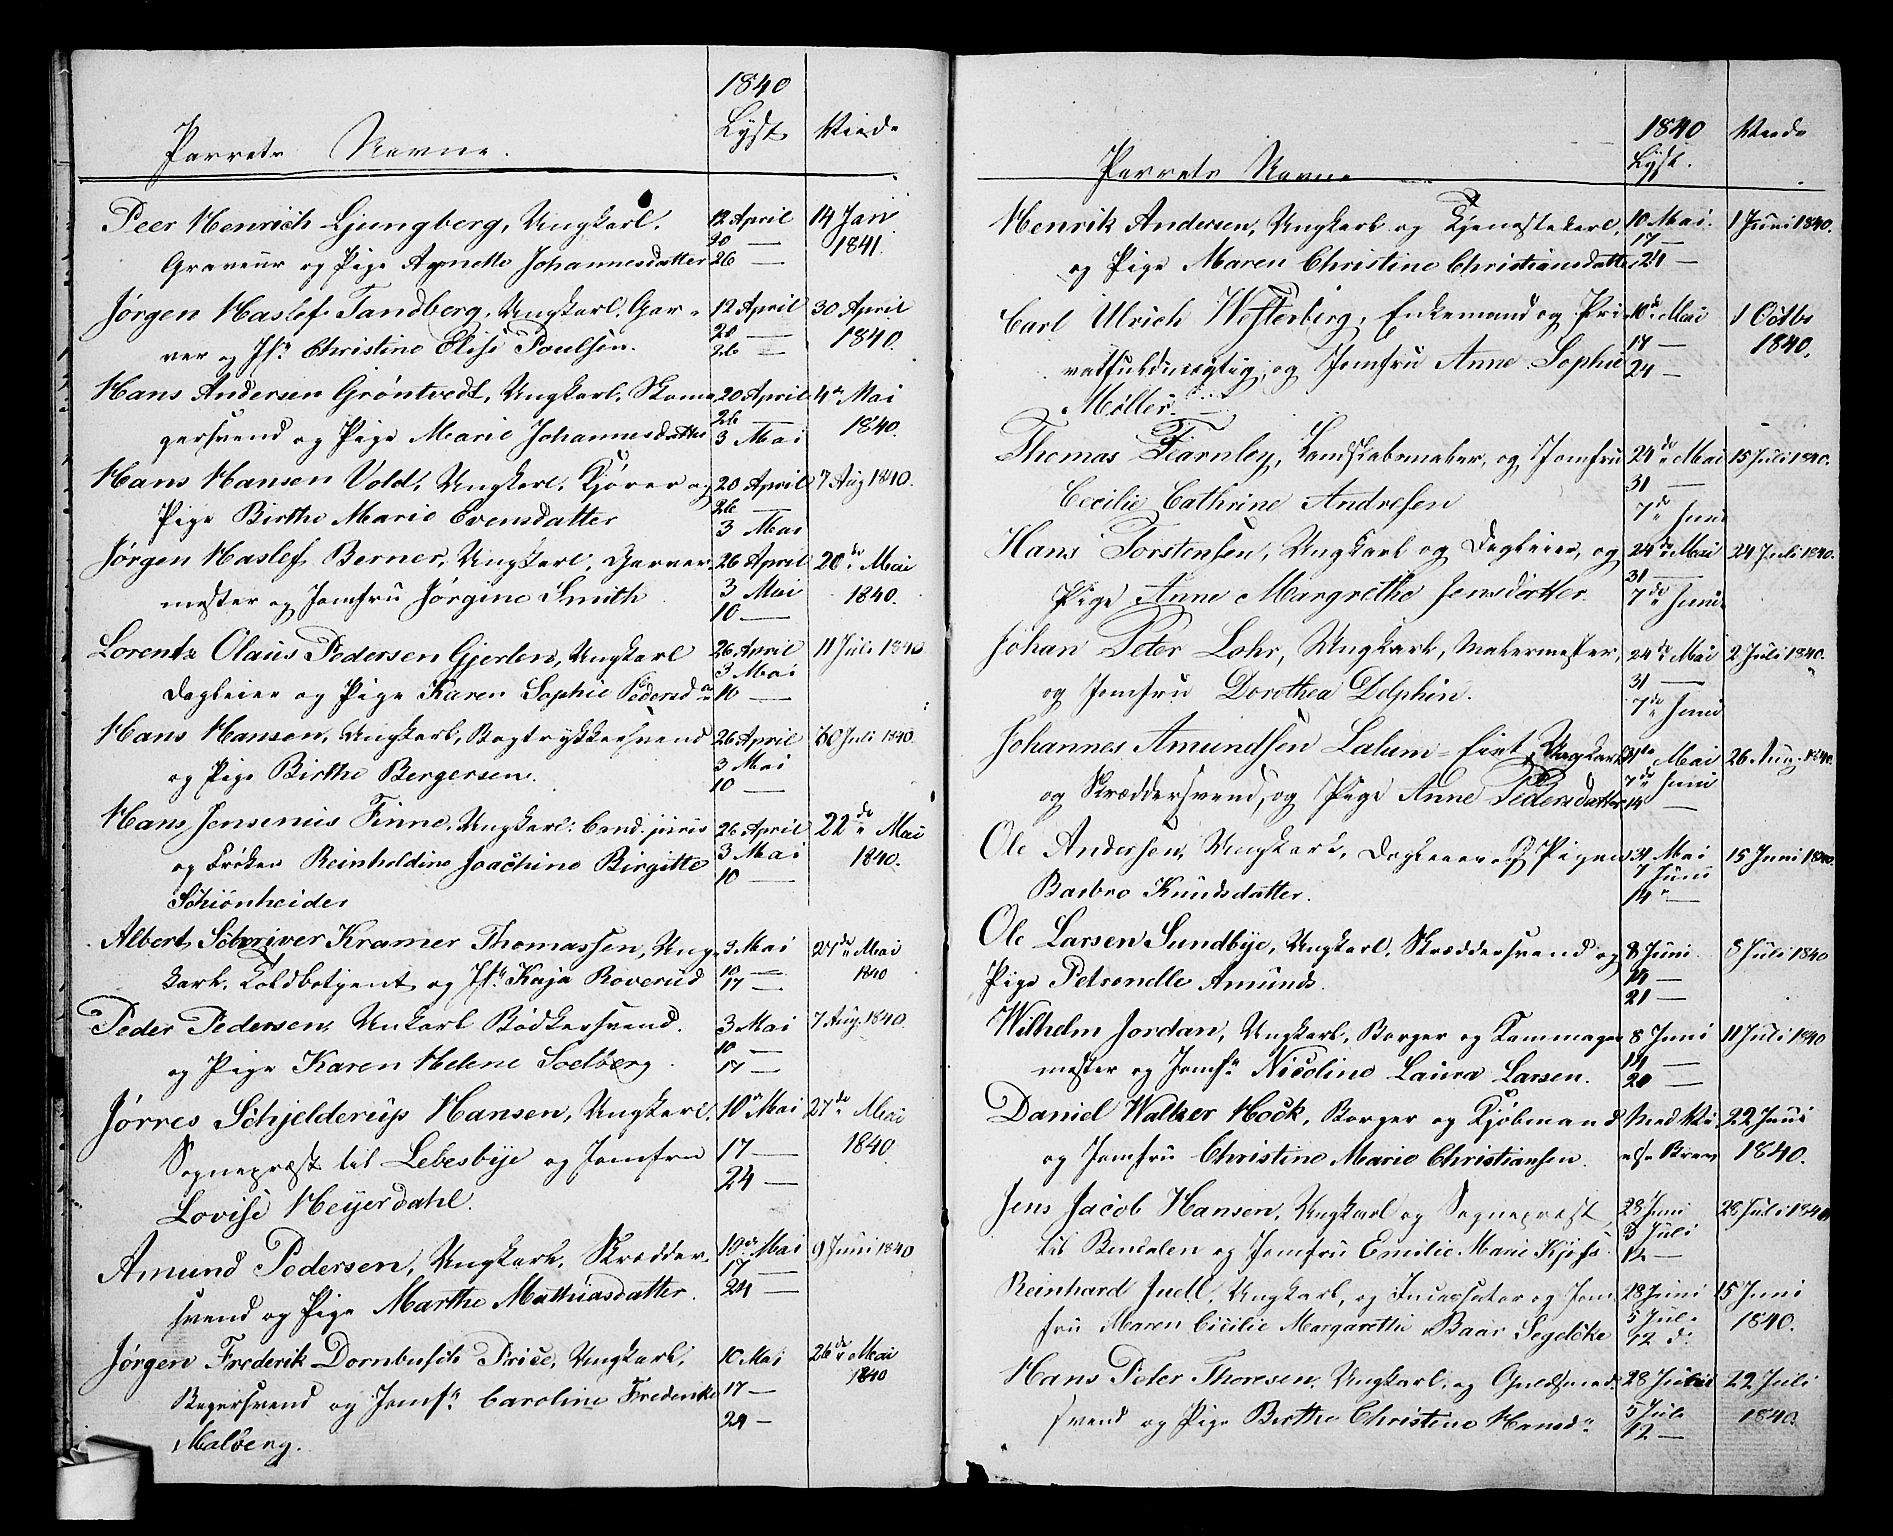 1840
Parrets Navne. Lyst Viede
Peer Henrich Ljungberg, Ungkarl, 12 April 14 Jan
20 — 1841.
Graveur og Pige Agnette Johannesdatter 26 —
Jørgen Haslef Tandberg, Ungkarl, Gar- 12 April 30 April
20 — 1840.
ver og Jfr Christine Elise Poulsen. 26 —
Hans Andersen Grøntvedt, Ungkarl, Skoma 20 April 4de Mai
26 1840.
gersvend og Pige Marie Johannesdatter 3 Mai
Hans Hansen Vold, Ungkarl, Kjører og 20 April 7 Aug 1840.
26 —
Pige Birthe Marie Evensdatter 3 Mai
Jørgen Haslef Berner, Ungkarl, Garver- 26 April 20de Mai
3 Mai 1840.
mester og Jomfru Jørgine Smith 10 —
Lorentz Olaus Pedersen Gjerlen, Ungkarl 26 April 11 Juli 1840
3 Mai
Dagleier og Pige Karen Sophie Pedersdr 10 —
Hans Hansen, Ungkarl, Bogtrykkersvend 26 April 30 Juli 1840.
3 Mai
og Pige Birthe Bergersen. 10 —
Hans Jensenius Finne, Ungkarl: Cand. juris 26 April 22de Mai
3 Mai 1840.
og Frøken Reinholdine Joachine Birgitte 10 —
Schiønheider
Albert Schriver Kramer Thomassen, Ung- 3 Mai 27de Mai
10 — 1840
karl, Toldbetjent og Jfr Kaja Roverud 17 —
Peder Pedersen, Unkarl Bødkersvend. 3 Mai 7 Aug. 1840.
10 —
og Pige Karen Helene Soelberg. 17 —
Jørres Schjelderup Hansen, Ungkarl, 10de Mai 27de Mai
Sognepræst til Lebesbye og Jomfru 17 — 1840
24 —
Lovise Heyerdahl.
Amund Pedersen, Ungkarl, Skrædder- 10de Mai 9 Juni 1840
17 —
svend og Pige Marthe Mathiasdatter. 24 —
Jørgen Frederik Dornbusch Trise, Ungkarl, 10 Mai 26de Mai
1840
Bagersvend og Jomfr Caroline Frederikke 17 —
24 —
Malberg.
1840 Viede
Parrets Navne Lyst.
Henrik Andersen, Ungkarl og Tjenestekarl, 10 Mai. 1 Juni 1840.
17 —
og Pige Maren Christine Christiansdatter 24 —
Carl Ulrich Westerberg, Enkemand og Pri 10de Mai 1 Octbr
17 — 1840.
vatfuldmægtig, og Jomfru Anne Sophie 24 —
Møller.
Thomas Fearnley, Landskabsmaler, og Jomfru 24de Mai 15 Juli 1840.
31 —
Cecilie Cathrine Andresen 7de Juni
Hans Torstensen, Ungkarl og Dagleier, og 24de Mai 24 Juli 1840.
31 —
Pige Anne Margrethe Jensdatter. 7de Juni
Johan Peter Lohr, Ungkarl, Malermester, 24de Mai 2 Juli 1840.
31 —
og Jomfru Dorothea Delphin. 7de Juni
Johannes Amundsen Lalum-Eiet, Ungkarl 31te Mai 26 Aug. 1840.
7de Juni
og Skræddersvend, og Pige Anne Pedersdatter 14 —
Ole Andersen, Ungkarl, Dagleier og Pigen 31 Mai 15 Juni 1840.
7 Juni
Barbro Knudsdatter. 14 —
Ole Larsen Sundbye, Ungkarl, Skræddersvend og 8 Juni 8 Juli 1840
14 —
Pige Petronelle Amunds. 21 —
Wilhelm Jordan, Ungkarl, Borger og Kammager 8 Juni 11 Juli 1840
14 —
mester og Jomfr Nicoline Laura Larsen. 20 —
Daniel Walker Hock, Borger og Kjøbmand Med Vi 22 Juni
og Jomfru Christine Marie Christiansen. else Brev 1840.
Jens Jacob Hansen, Ungkarl og Sognepræst 28 Juni 28 Juli 1840
5 Juli
til Bendalen og Jomfru Emilie Marie 12 —
Reinhard Juell, Ungkarl, og og Jom 28 Juni 15 Juni
5 Juli 1840.
fru Maren Cicilie Margarethe Baar Segelcke 12 d:
Hans Peter Thoresen, Ungkarl, og Guldsmed 28 Juni 22 Juli
5 Juli 1840.
svend og Pige Birthe Christine Hansdr 12 —